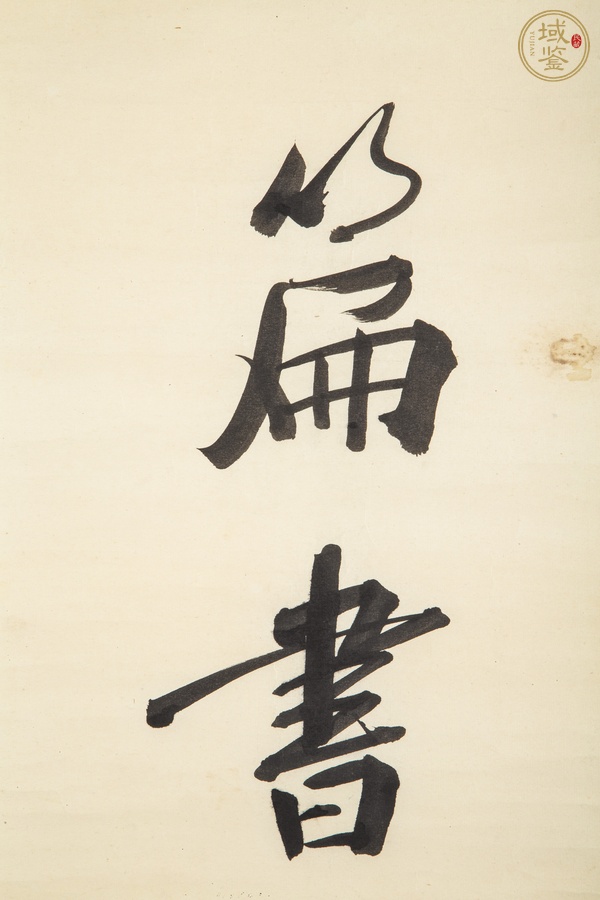 篇書
域鉴
YUJIAN